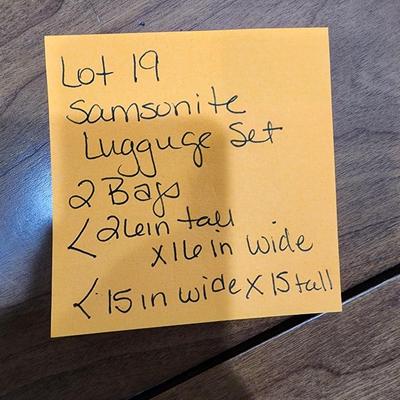 Lot 19
Samsonite
Lugguge Set
2 Bags
< 26in tall
x16in wide
< 15 in wide x 15 tall